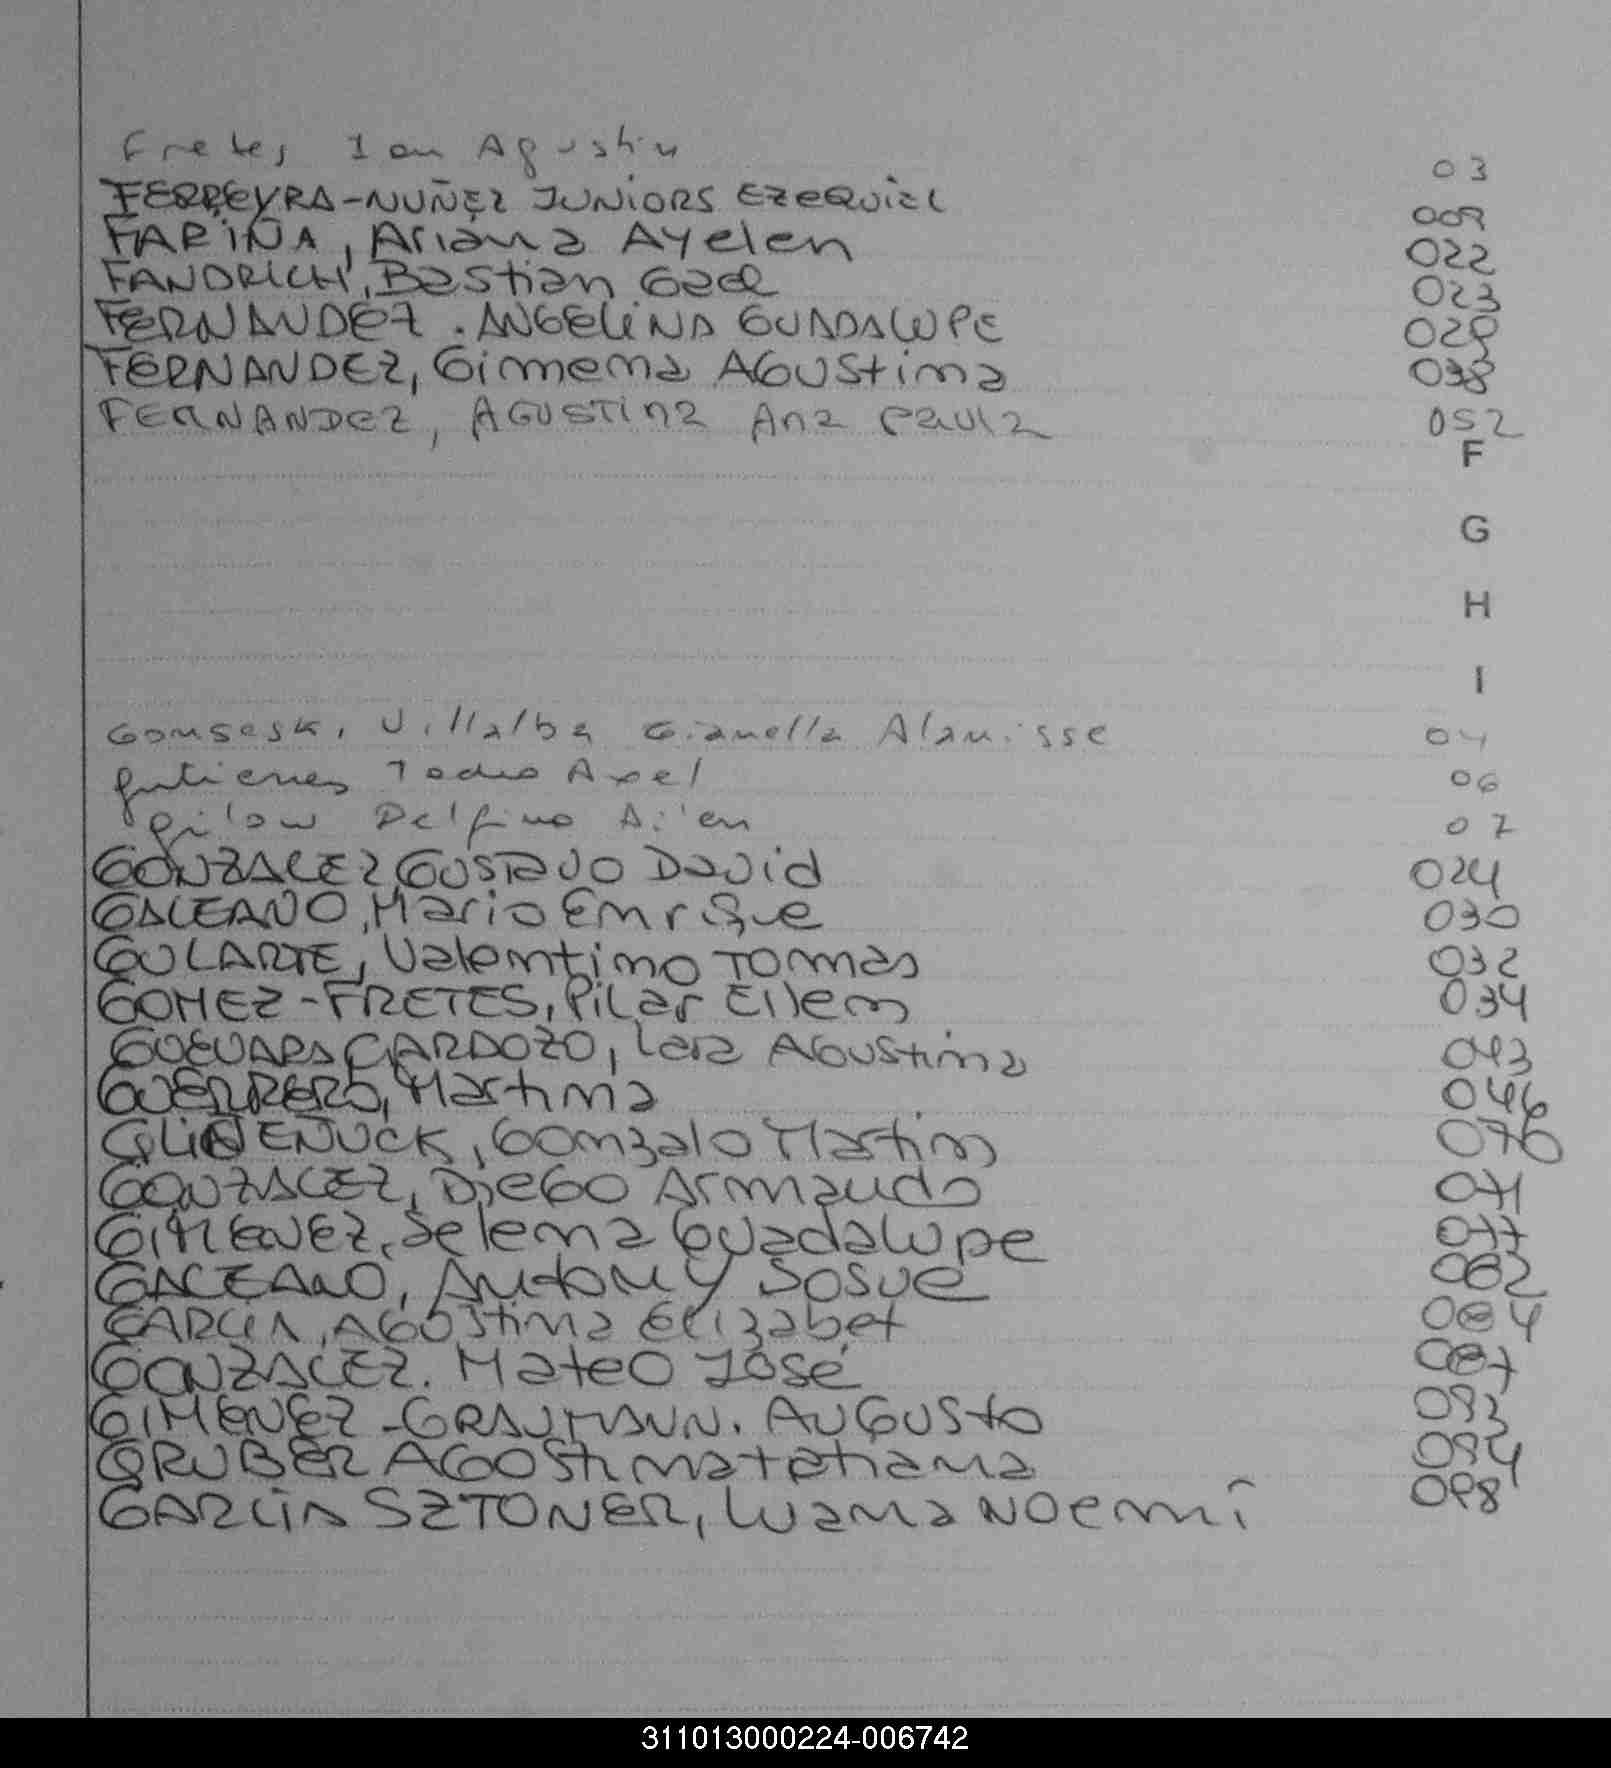 Fretes Ian Agustin 03
FERREYRA-NUÑEZ JUNIORS EZEQUIEL 009
FARIÑA, Ariana Ayelen 022
FANDRICH, Bastian Gael 023
FERNANDEZ. ANGELINA GUADALUPE 028
FERNANDEZ, Gimmena AGUStina 038
FERNANDEZ, AGUSTINA Ana Paula 052
F
G
H
I
Villalba Gianella Alanisse 04
Axel 06
Delfina Ailen 07
GONZALEZ, GUSTAVO David 024
GALEANO, Mario Enrique 030
GULARTE, Valentino TOMAS 032
GOMEZ-FRETES, Pilar Eilem 034
GUEVARA CARDOZO, Lara AGUStina 043
GUERRERO, Martina 046
Gonzalo Martin 070
GONZALEZ, DieGO Armando 071
GIMENEZ, Selena Guadalupe 077
GALEANO, Antony JOSUE 082
GARCIA, AGOStina Elizabet 084
GONZALEZ. MateO José 087
GIMENEZ-GRAUMANN. AUGUSto 093
GRUBER AGOStina tatiana 094
GARCIA SZTONER, Luana NOemi 098
311013000224-006742